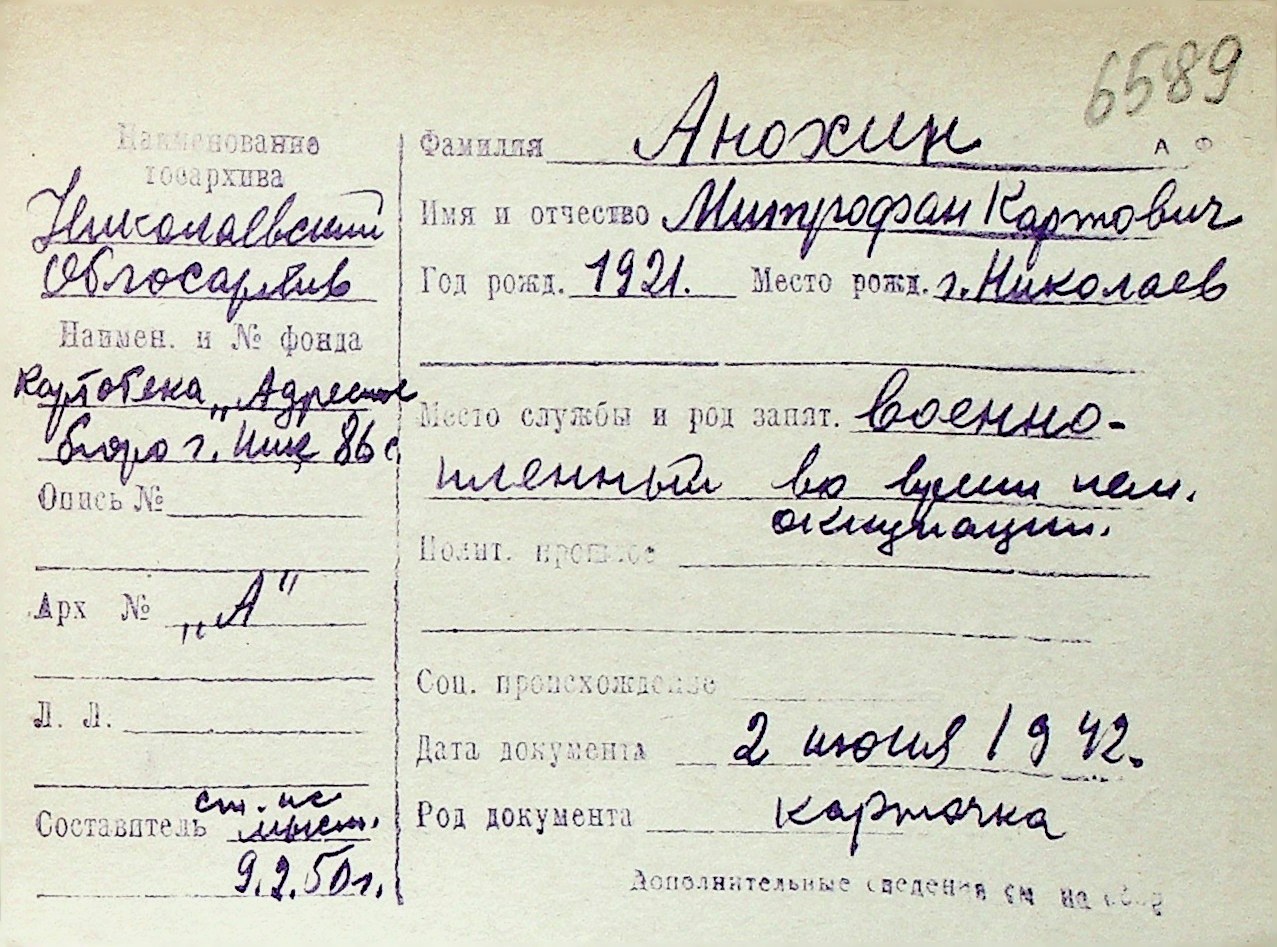 6589
Наименование
госархива
Николаевский
Облгосархив
Наимен. и № фонда
Картотека „Адресное
бюро г. Ник 86 с.
Опись №
Арх № „А"
Л. Л.
Составитель ст. нс
9.2.50 г.
Фамилия Анохин
А Ф
Имя и отчество Митрофан Карпович
Год рожд. 1921. Место рожд. г. Николаев
Место службы и род занят. военно-
пленный во время нем.
оккупации.
Полит. прошлое
Соц. происхождение
Дата документа 2 июня 1942.
Род документа карточка
Дополнительные сведения см на обор